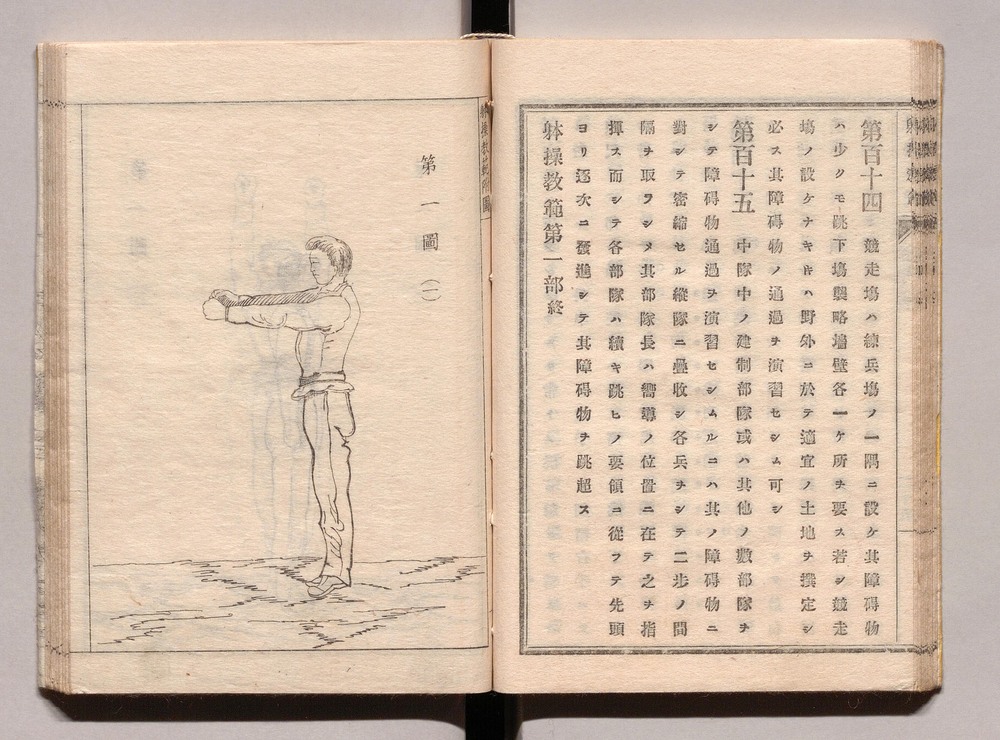 第百十四　競走塲ハ練兵塲ノ一隅ニ設ケ其障碍物
ハ少クモ跳下塲襲略墻壁各一ケ所ヲ要ス若シ競走
塲ノ設ケナキトキハ野外ニ於テ適宜ノ土地ヲ撰定シ
必ス其障碍物ノ通過ヲ演習セシム可シ
第百十五　中隊中ノ建制部隊或ハ其他ノ數部隊ヲ
シテ障碍物通過ヲ演習セシムルニハ其ノ障碍物ニ
對シテ密縮セル縱隊ニ疊收シ各兵ヲシテ二步ノ間
隔ヲ取ラシメ其部隊長ハ嚮導ノ位置ニ在テ之ヲ指
揮ス而シテ各部隊ハ續キ跳ヒノ要領ニ從フテ先頭
ヨリ逐次ニ發進シテ其障碍物ヲ跳超ス
躰操敎範第一部終
第一圖(一)